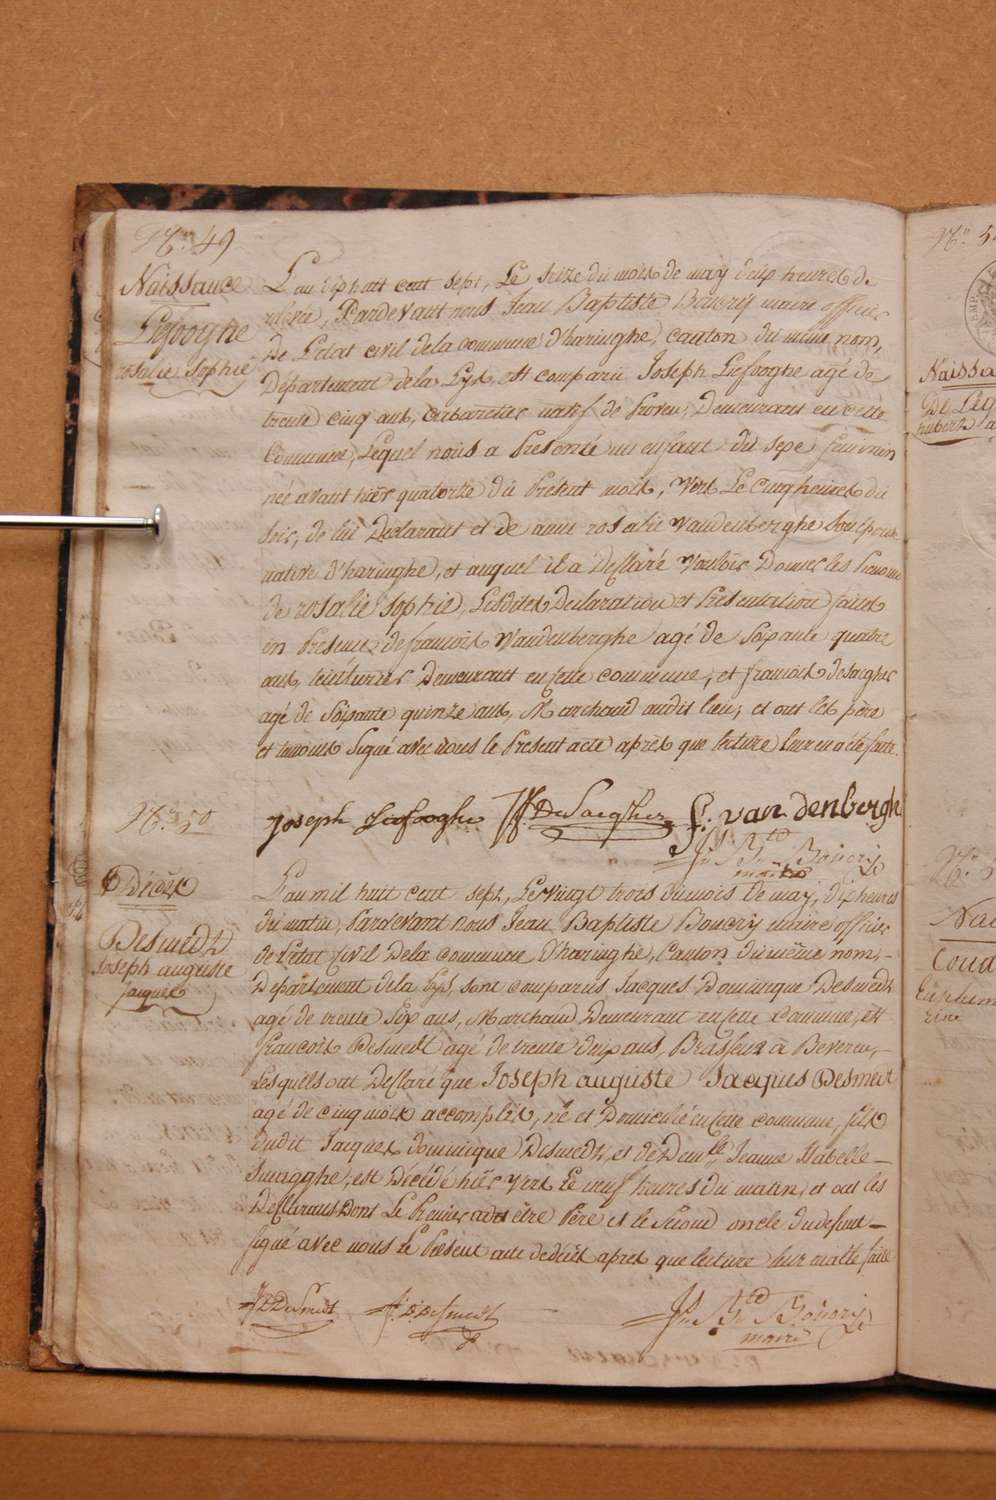 N.° 49
Naissance
Liefooghe
rosalie Sophie
L'an dixhuit cent sept, Le Seize du mois de may dix heures de
relevée, Pardevant nous Jean Baptiste Boucry maire officier
de L'etat civil de la commune d'haringhe, canton du même nom,
Département de la Lys, est comparu Joseph Liefooghe agé de
trente cinq ans, cabaretier natif de Proven, Demeurant en cette
Commune, Lequel nous a Presenté un enfant du sexe feminin
née avant hier quatorze du Present mois, Vers Le Cinq heures du
soir, de lui Declarant et de anne rosalie Vandenberghe Son Epouse
native d'haringhe, et auquel il a Declaré Vouloir Donner les Prenoms
de rosalie Sophie, Lesdites Declaration et Presentation faites
en Presence de francois Vandenberghe agé de Soixante quatre
ans, teinturier Demeurant en cette commune, et francois desaegher
agé de Soixante quinze ans, Marchand audit Lieu; et ont les père
et temoins Signé avec nous le Present acte après que lecture Leur en a été faite.
joseph Liefooghe J F De Saegher f. van denbergh
Jn Bte Boucry
maire
N.° 50
Décès
Desmedt
Joseph auguste
jacques
L'an mil huit cent sept, Le vingt trois du mois de may, dix heures
du matin, Pardevant nous Jean Baptiste Boucry maire officier
de L'etat Civil De la commune d'haringhe, Canton du même nom,
Département de la Lys, sont comparus Jacques Dominique Desmedt
agé de trente Six ans, Marchand Demeurant en cette Commune, et
francois Desmedt agé de trente deux ans, Brasseur à Beveren,
Lesquels ont Declaré que Joseph auguste Jacques Desmedt
agé de cinq mois accomplis, né et Domicilié en Cette commune, fils
dudit Jacques dominique Desmedt, et de Demlle Jeanne Isabelle
Swagghe, est Décédé hier vers Le neuf heures du matin, et ont les
Declarants Dont Le Premier a dit être Père et le Second oncle du defunt
signé avec nous Le Present acte de décès après que lecture Leur en a été faite
J D Desmedt F. D. Desmedt Jn Bte Boucry
maire
N.° 5
Naissa
De Leg
hubert a
N.° 5
Nai
Coud
Euphem
rine